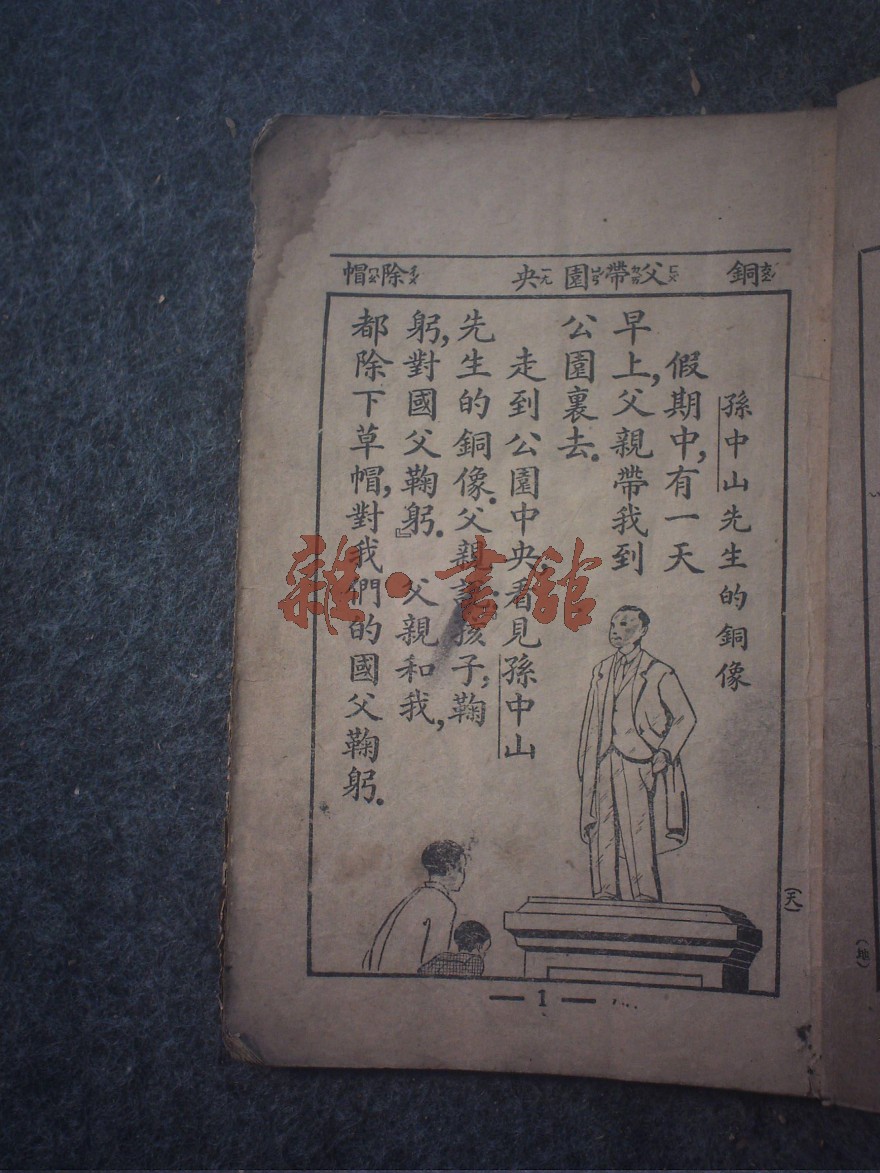 銅ㄊㄨㄥ 父ㄈㄨ 帶ㄉㄞ 園ㄩㄢ 央ㄧㄤ 除ㄔㄨ 帽ㄇㄠ
孫中山先生的銅像
假期中,有一天
早上,父親帶我到
公園裏去。
走到公園中央,看見孫中山
先生的銅像。父親說:『孩子,鞠
躬,對國父鞠躬。』父親和我,
都除下草帽,對我們的國父鞠躬。
(天)
— 1 —
(地)
雜·書館